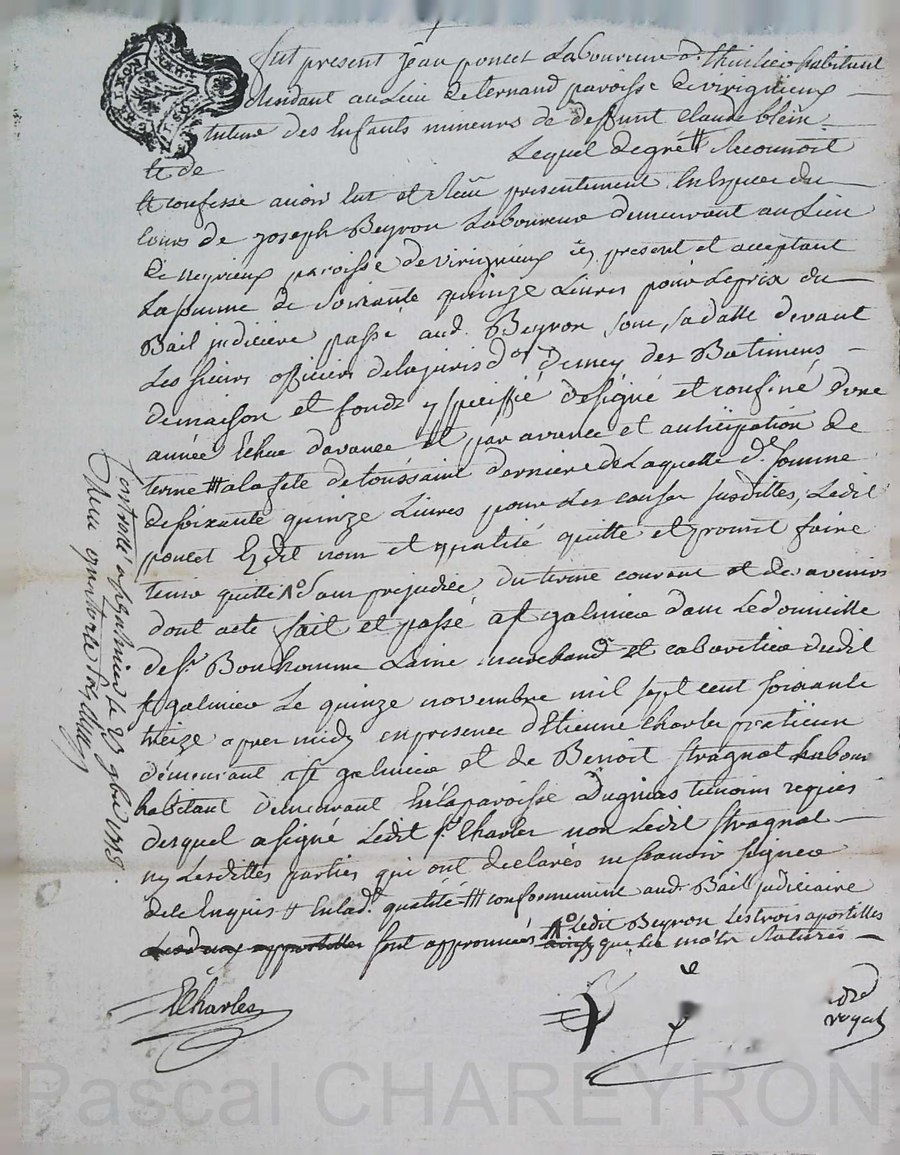 fut present jean poncet Laboureur
demeurant au Lieu de Lernand paroisse de virigneux
tuteur des Enfants mineurs de deffunt claude blein
et de Lequel de gré # Reconnoit
et confesse avoir Eut et Reçu presentement En Especes du
cours de joseph Beyron Laboureur demeurant au Lieu
de neyrieux paroisse de virigneux icy present et acceptant
La somme de soixante quinze Livres pour Le prix du
Bail judiciere passé aud. Beyron sous sa datte devant
Les sieurs officiers de la jurisd.on des Batimens
de maison et fonds y specifié designé et confiné d'une
année Echue d'avance et par avance et anticipation de
terme # a la fete de toussaint derniere de Laquelle d.e somme
de soixante quinze Livres pour Les causes susdittes, Ledit
poncet Esdit nom et qualité quitte et promet faire
tenir quitte sans prejudice du terme courant et des avenirs
dont acte fait et passé a st galmier dans Le domicille
de sr. Bonhomme Lainé marchand et cabaretier dudit
st galmier Le quinze novembre mil sept cent soixante
treize apres midy en presence d'Etienne Charles praticien
demeurant a st galmier et de Benoit stragnat Labour
habitant demeurant En la paroisse temoins requis
desquel a signé Ledit sr Charles non Ledit stragnat
ny Lesdittes parties qui ont declarés ne sçavoir signer
de ce Enquis # En lad.e qualité ## conformement aud. Bail judiciaire
sont approuvés Ledit Beyron Les trois apostilles
que Les mots
Controlé a st galmier le
Reçu
ECharles
royal
Pascal CHAREYRON